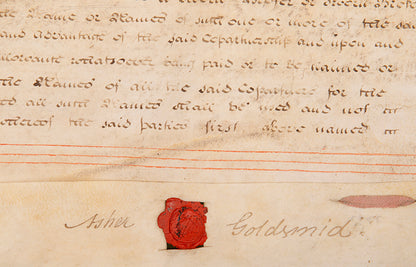 the Name or Names of such one or more of the said
and advantage of the said Copartnership and upon and
whatsoever being paid or to be named or
the Names of all the said Copartners for the
all such Names shall be used and not
the said parties first above named
Asher Goldsmid